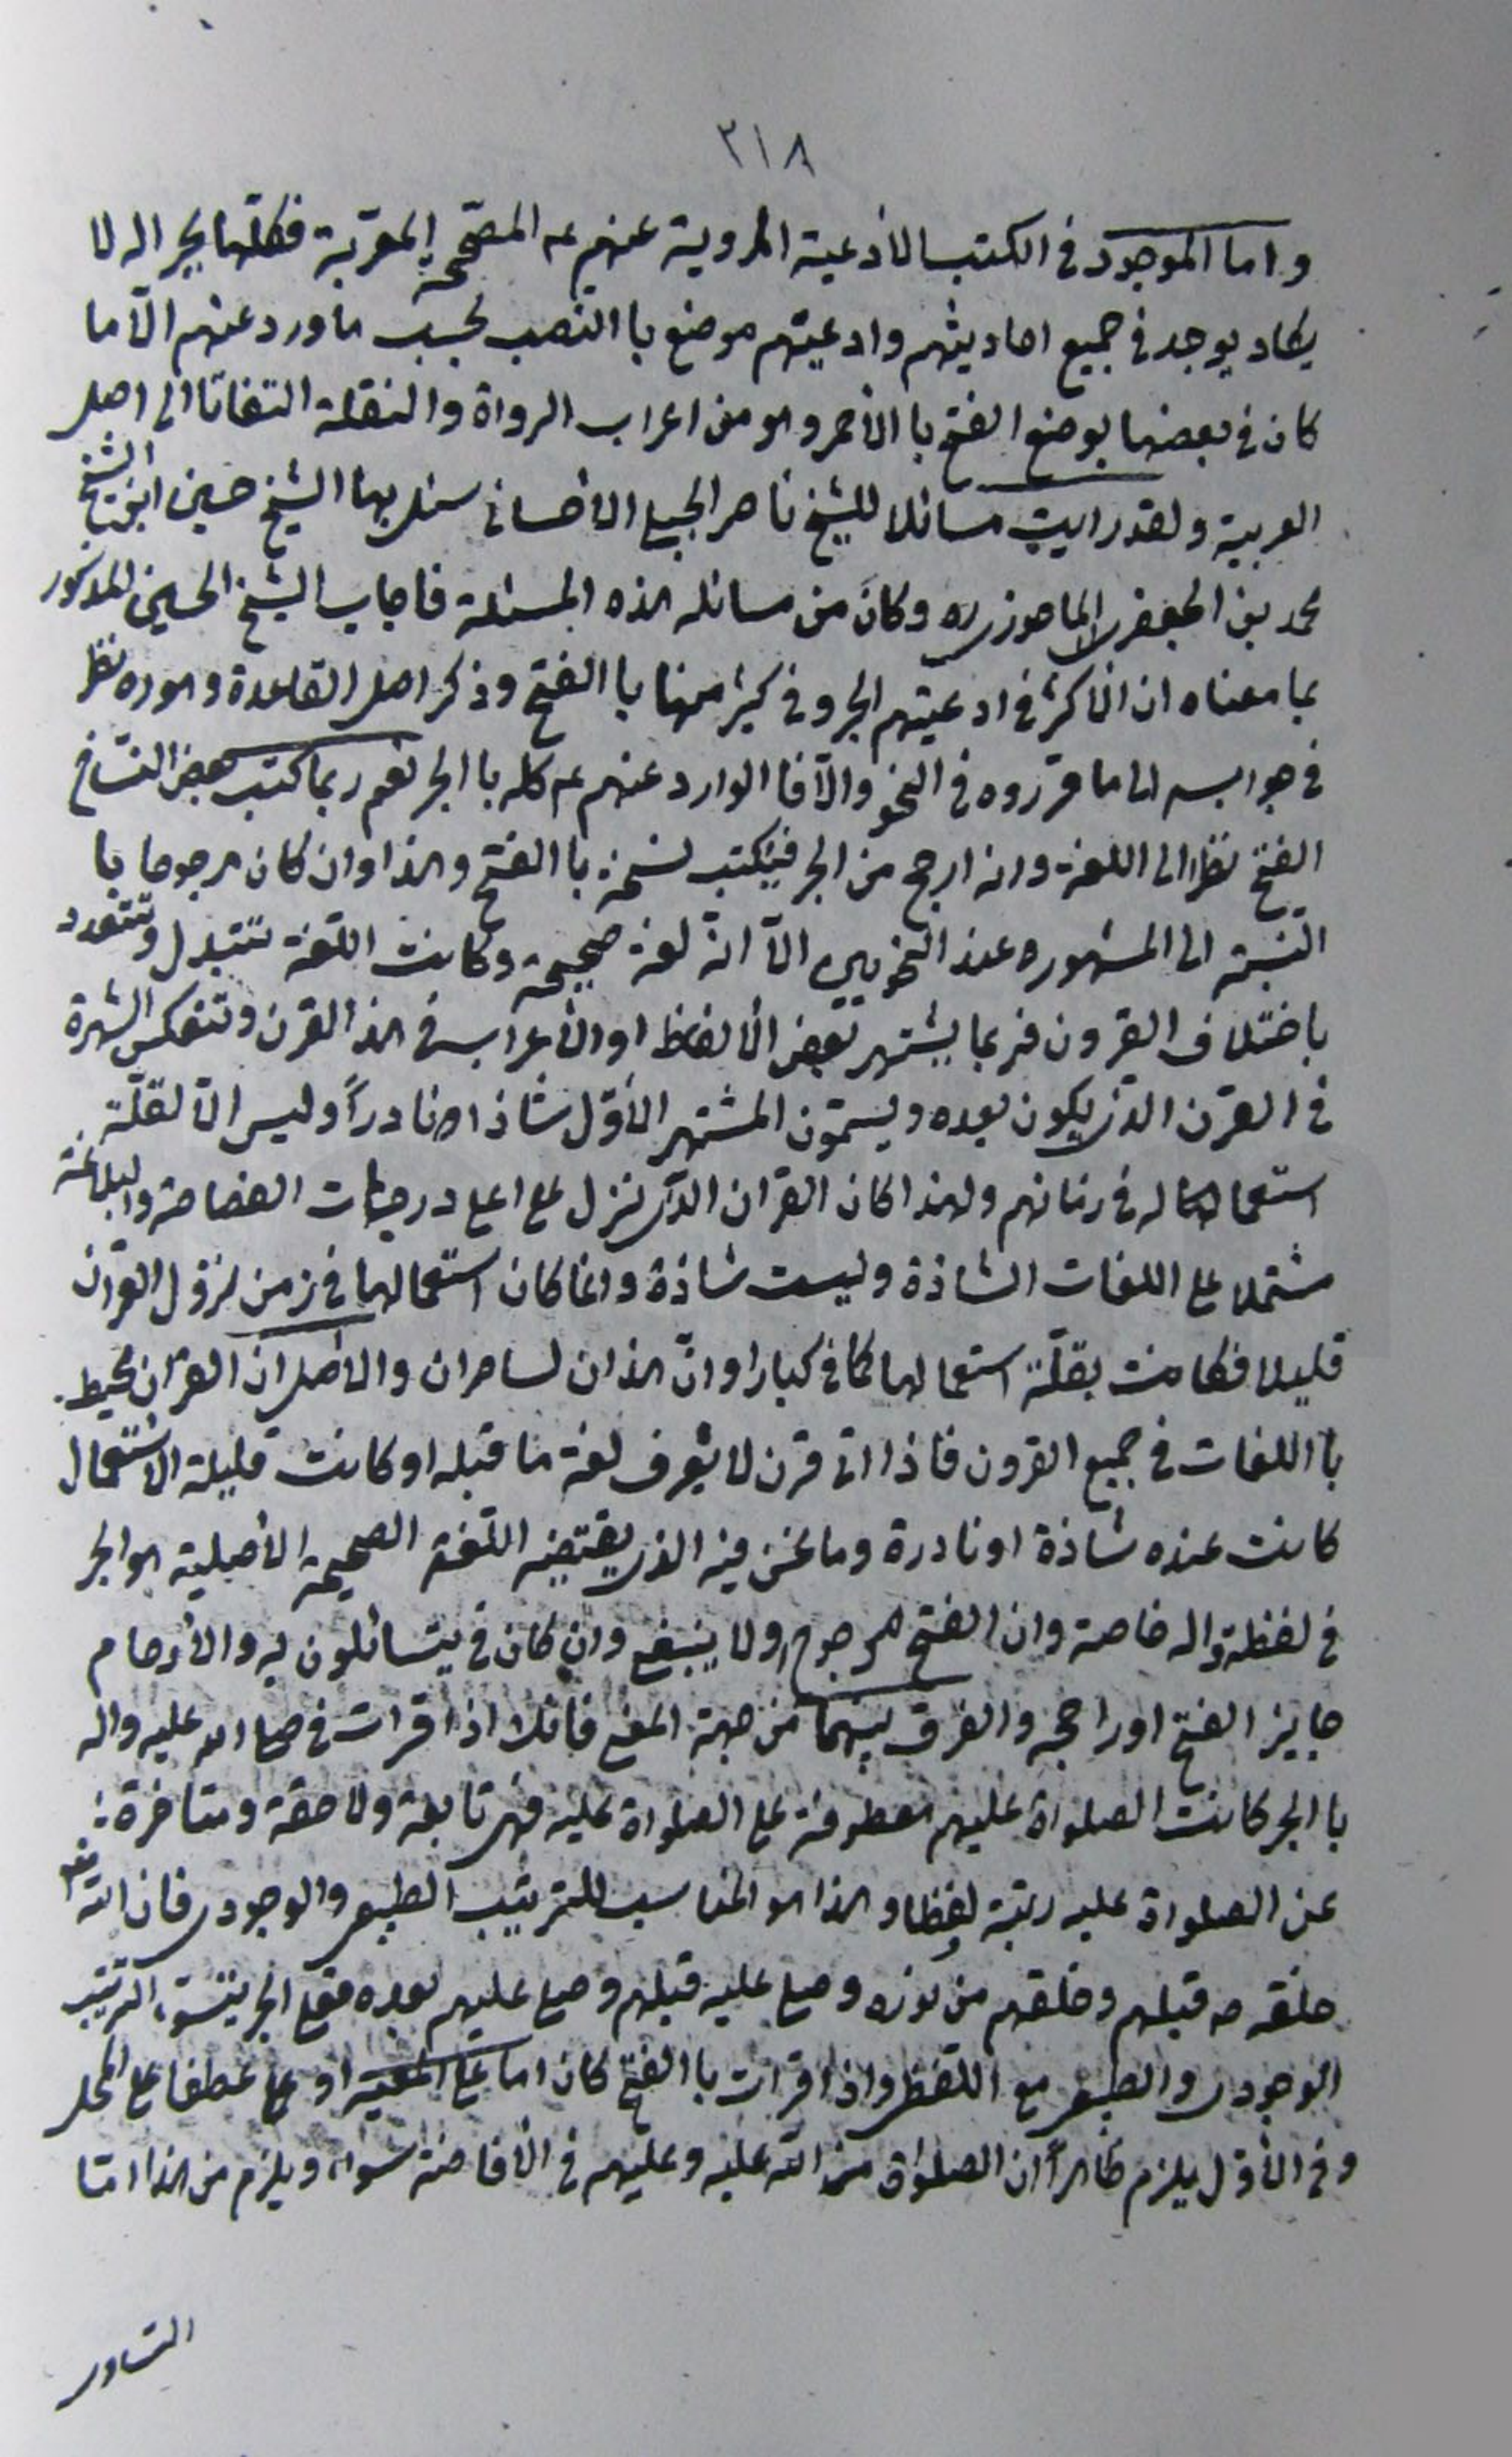 ٣١٨
واما الموجود فى الكتب الادعية المروية عنهم عم المصححة المعربة فكلها بجر اله لا
يكاد يوجد فى جميع احاديثهم وادعيتهم موضع با النصب بحسب ما ورد عنهم الّا ما
كان فى بعضها بوضع الفتح با الأحمر وهو من اعراب الرواة والنقلة التفاتا الى اصل
العربية ولقد رايت مسائلا للشيخ ناصر الجبيلى الاحسائى سئل بها الشيخ حسين ابن الشيخ
محمد بن الجعفر الماحوزى ره وكان من مسائله هذه المسئلة فاجاب الشيخ الحسين المذكور
بما معناه ان الأكثر فى ادعيتهم الجر وفى كثير منها با الفتح وذكر اصل القاعدة وهوره نظر
فى جوابه الى ما قرروه فى النحو والّا فا الوارد عنهم عم كله با الجر نعم ربما كتب بعض النسّاخ
الفتح نظرا الى اللغة وانه ارجح من الجر فيكتب نسخة با الفتح وهذا وان كان مرجوحا با
النسبة الى المشهوره عند النحويين الّا انّه لغة صحيحة وكانت اللغة تتبدل وتتعدد
باختلاف القرون فربما يشتهر بعض الألفاظ او الأعراب فى هذا القرن وتنعكس الشهرة
فى القرن الذى يكون بعده ويسمّون المشتهر الأوّل شاذا ونادراً وليس الّا لقلّة
استعمالهم له فى زمانهم ولهذا كان القران الذى نزل على اعلى درجات الفصاحة والبلاغة
مشتملا على اللغات الشاذة وليست شاذة وانما كان استعمالها فى زمن نزول القران
قليلا فكانت بقلّة استعمالها كما فى كبارا وانّ هذان لساحران والأصل ان القران محيط
با اللغات فى جميع القرون فاذا اتى قرن لا يعرف لغة ما قبله او كانت قليلة الاستعمال
كانت عنده شاذة او نادرة وما نحن فيه الذى يقتضيه اللّغة الصحيحة الأصلية هو الجر
فى لفظة واله خاصة وان الفتح مرجوح ولا ينبغى وان كان فى يتسائلون به والأرحام
جايز الفتح او راجحه والفرق بينهما من جهة المعنى فانك اذا قرات فى صلى الله عليه واله
با الجر كانت الصلواة عليهم معطوفة على الصلواة عليه فهى تابعة ولاحقة ومتاخرة
عن الصلواة عليه رتبة ولفظا وهذا هو المناسب للترتيب الطبيعى والوجودى فان الله تعم
خلقه ص قبلهم وخلقهم من نوره وصلى عليه قبلهم وصلى عليهم بعده فعلى الجر يتسق الترتيب
الوجودى والطبيعى مع اللّفظى واذا قرات با الفتح كان اما على المعيّة او على عطفا على المحل
وفى الأوّل يلزم ظاهراً ان الصلواة من الله عليه وعليهم فى الأفاضة سواء ويلزم من هذا امّا
التساوى